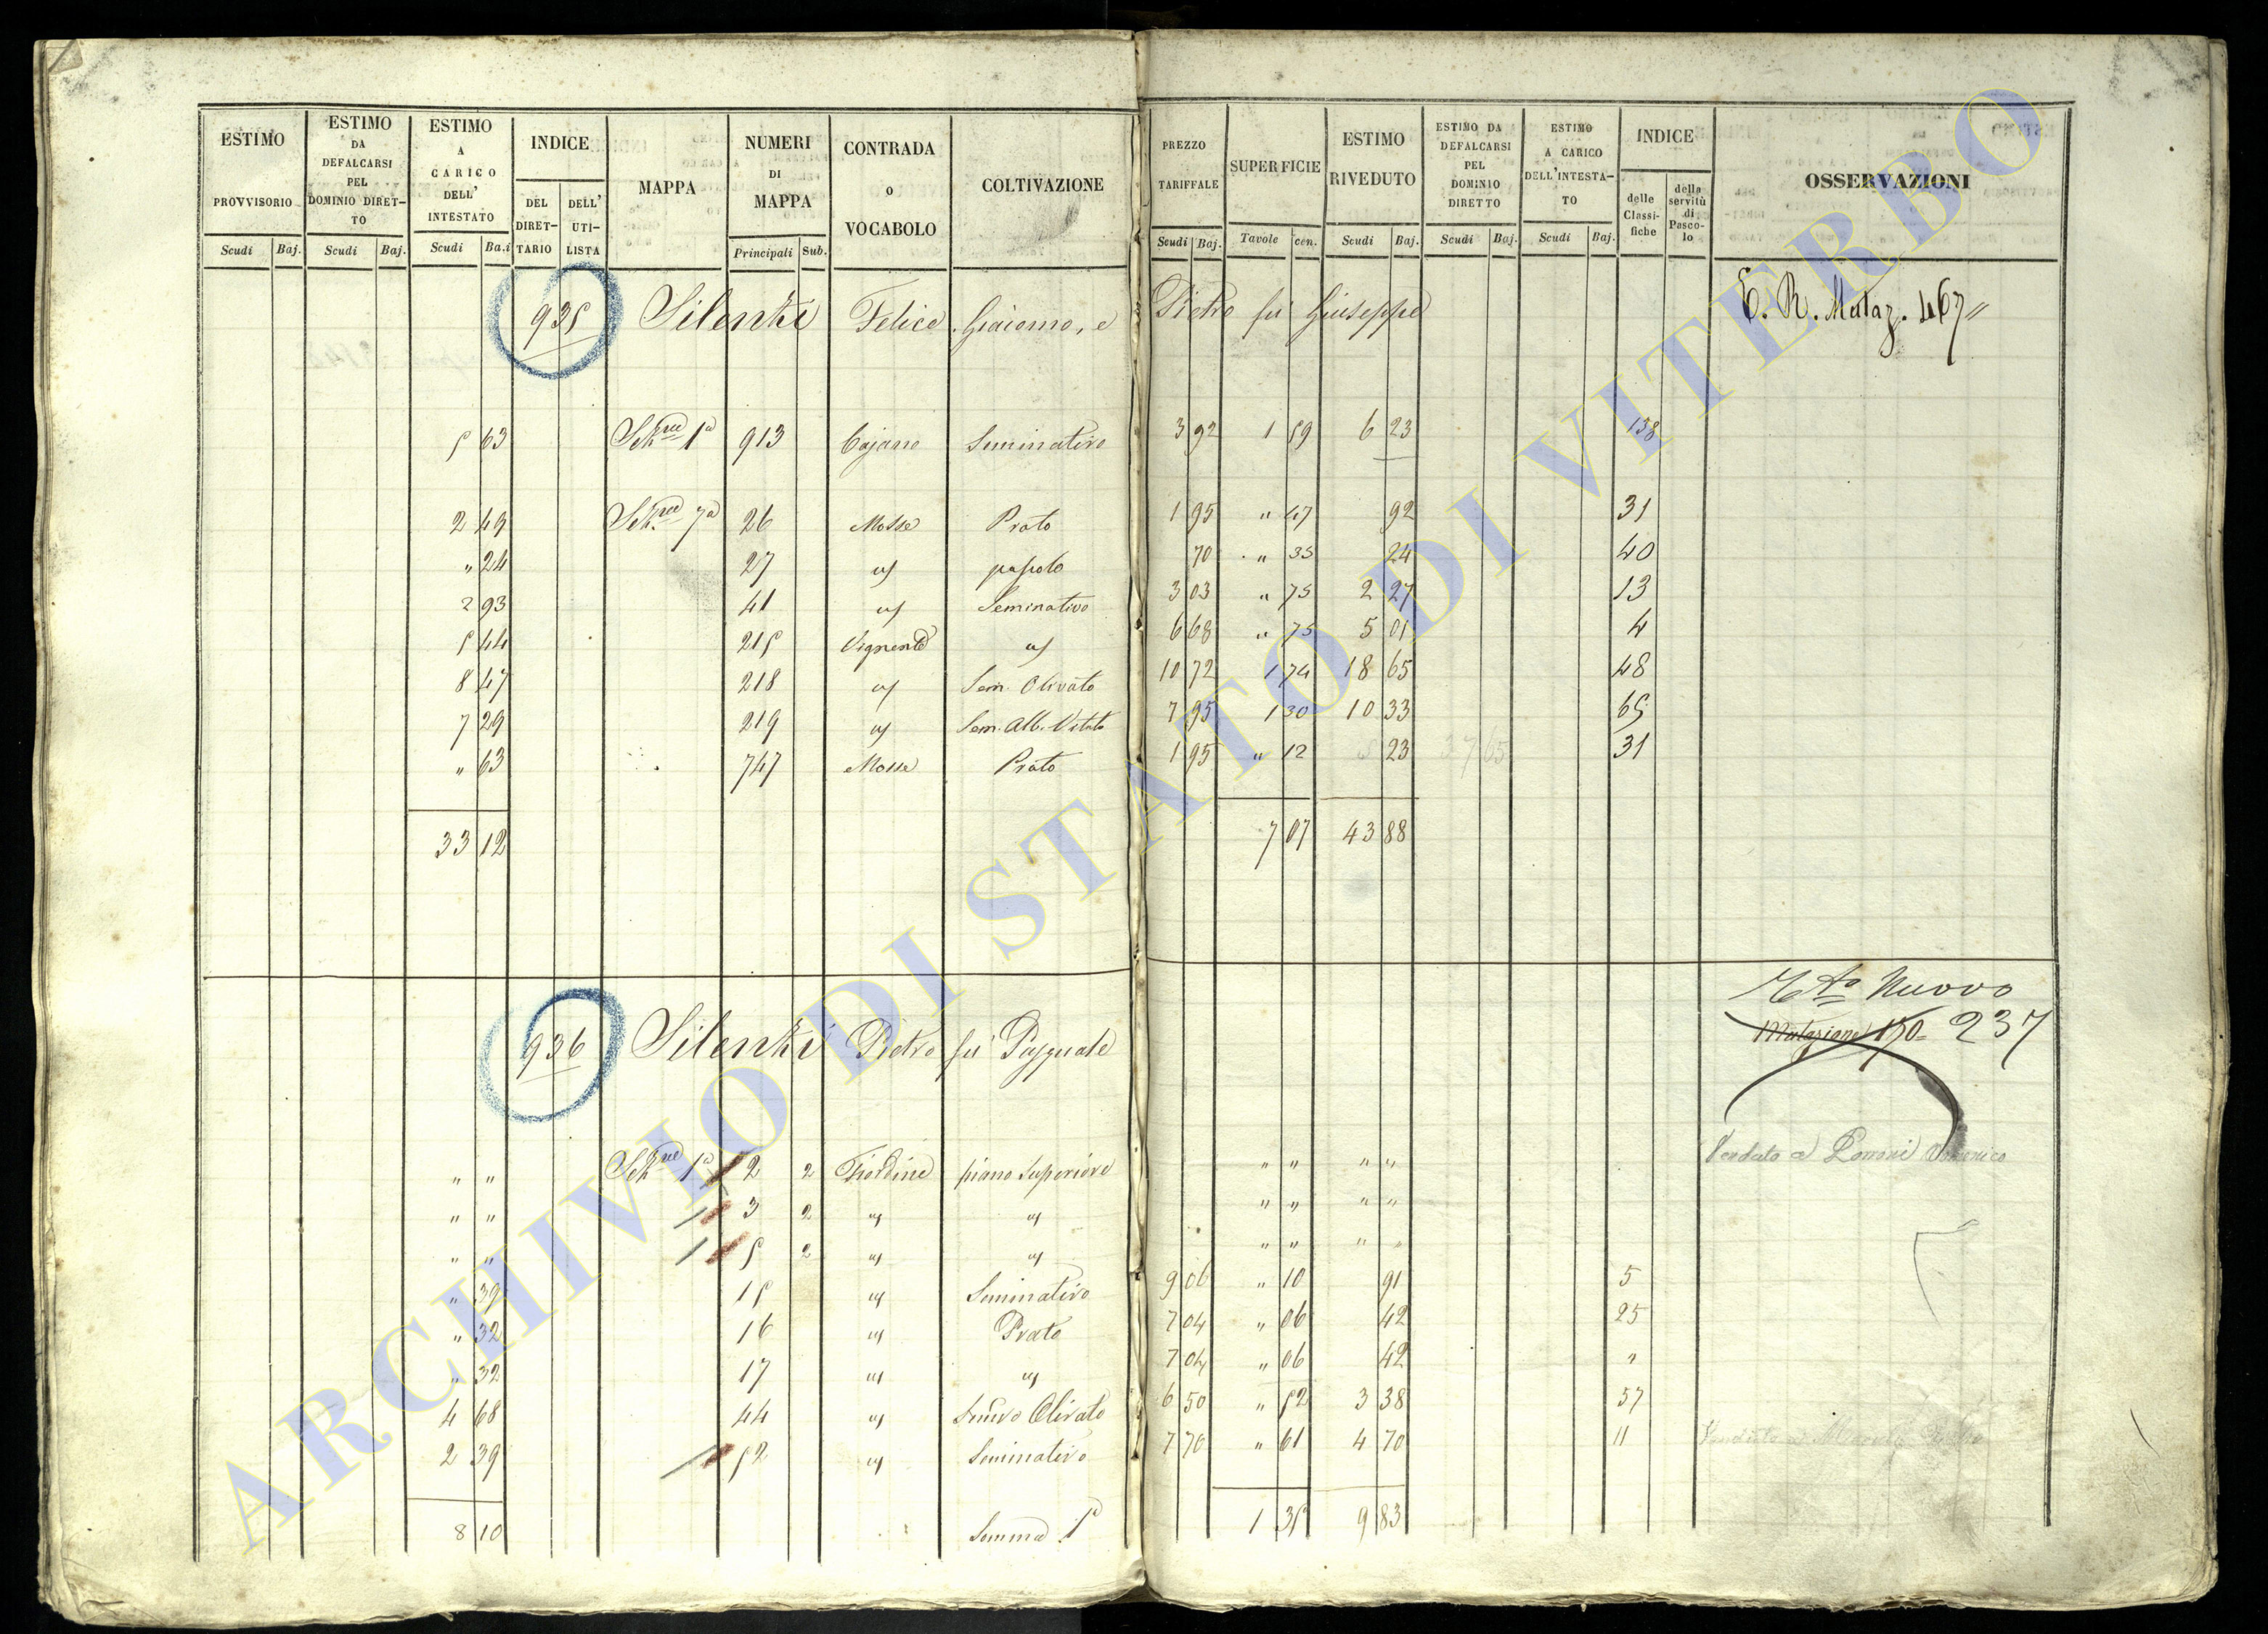 ESTIMO PROVVISORIO Scudi Baj.
ESTIMO DA DEFALCARSI PEL DOMINIO DIRET-TO Scudi Baj.
ESTIMO A CARICO DELL' INTESTATO Scudi Ba.i
INDICE DEL DIRET-TARIO DELL' UTI-LISTA
MAPPA
NUMERI DI MAPPA Principali Sub.
CONTRADA o VOCABOLO
COLTIVAZIONE
PREZZO TARIFFALE Scudi Baj.
SUPERFICIE Tavole cen.
ESTIMO RIVEDUTO Scudi Baj.
ESTIMO DA DEFALCARSI PEL DOMINIO DIRETTO Scudi Baj.
ESTIMO A CARICO DELL'INTESTA-TO Scudi Baj.
INDICE delle Classi-fiche della servitù di Pasco-lo
OSSERVAZIONI
935 Silenzi Felice, Giacomo, e Pietro fu Giuseppe E. R. Mutaz. 467"
5 63 Sez.ne 1a 913 Cajano Seminativo 3 92 1 59 6 23 138
2 49 Sez.ne 7a 26 Mosse Prato 1 95 " 47 92 31
" 24 27 uj pascolo 70 " 35 24 40
2 93 41 uj Seminativo 3 03 " 75 2 27 13
5 44 215 uj 6 68 " 75 5 01 4
8 47 218 uj Sem. Olivato 10 72 1 74 18 65 48
7 29 219 uj Sem. Alb. Vitato 7 95 1 30 10 33 65
" 63 747 Mosse Prato 1 95 " 12 23 37 65 31
33 12 7 07 43 88
Nuovo
936 Silenzi Pietro fu Pasquale Mutazione 190 237
" " Sez.ne 1a 2 2 piano superiore " " " " Venduto a Domenico
" " 3 2 uj uj " " " "
" " 5 2 uj uj " " " "
" 39 15 uj Seminativo 9 06 " 10 91 5
" 32 16 uj Prato 7 04 " 06 42 25
" 32 17 uj uj 7 04 " 06 42 "
4 68 44 uj Semvo Olivato 6 50 " 52 3 38 57
2 39 52 uj Seminativo 7 70 " 61 4 70 11 Venduto a
8 10 Somma 1 35 9 83
ARCHIVIO DI STATO DI VITERBO